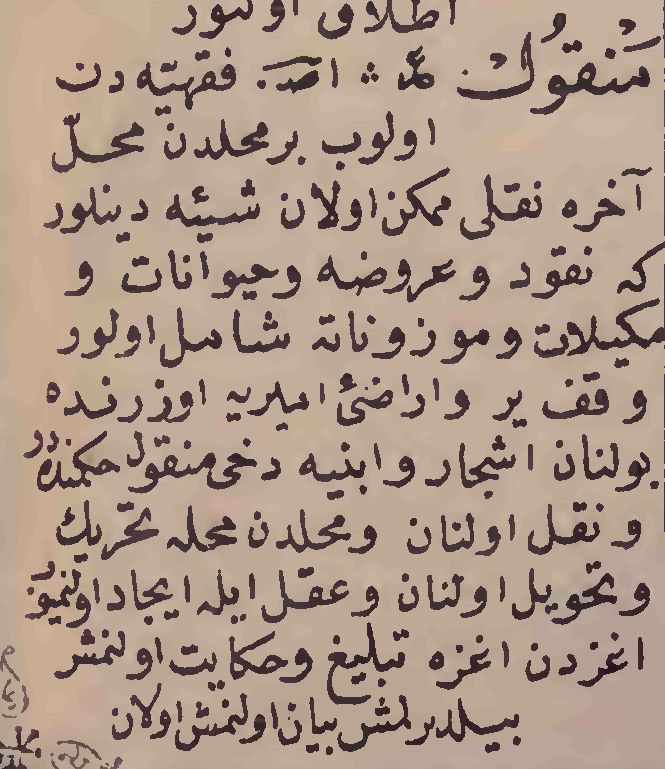 اطلاق اولنور
مَنقُول عر اصـ. فقهيّه دن
اولوب بر محلدن محلّ
آخره نقلى ممكن اولان شيئه دينلور
كه نقود وعروضه وحيوانات و
مكيلات وموزوناته شامل اولور
وقف ير واراضئ اميريه اوزرنده
بولنان اشجار وابنيه دخى منقول حكمنده در
ونقل اولنان ومحلدن محله تحريك
وتحويل اولنان وعقل ايله ايجاد اولنميوب
اغزدن اغزه تبليغ وحكايت اولنمش
بيلديرلمش بيان اولنمش اولان